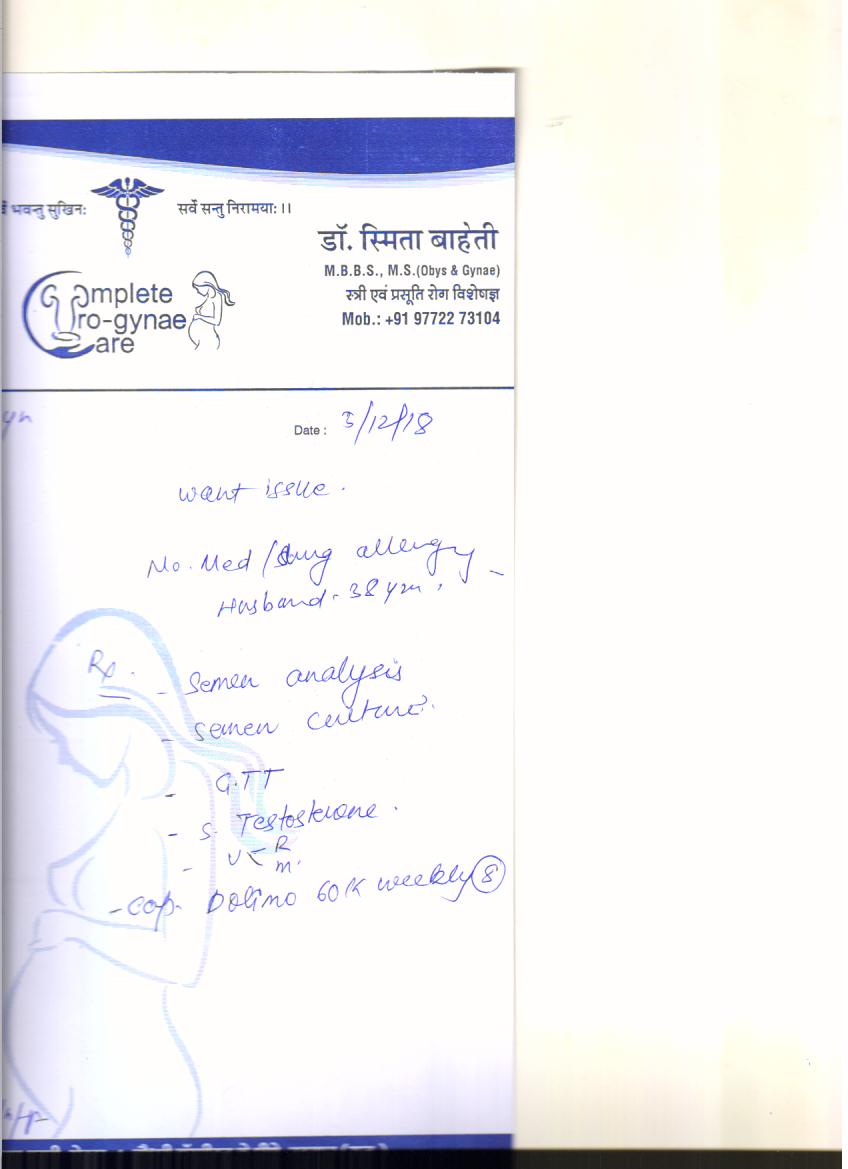 भवन्तु सुखिनः
सर्वे सन्तु निरामयाः ।।
डॉ. स्मिता बाहेती
M.B.B.S., M.S.(Obys & Gynae)
स्त्री एवं प्रसूति रोग विशेषज्ञ
Mob.: +91 97722 73104
Complete
Uro-gynae
Care
Date : 3/12/18
want issue.
No. Med / drug allergy
Husband - 38 yrs,
Rx.
- Semen analysis
- semen culture.
- GTT
- S. Testosterone.
- U < R
m.
- cap. Dolimo 60K weekly 8